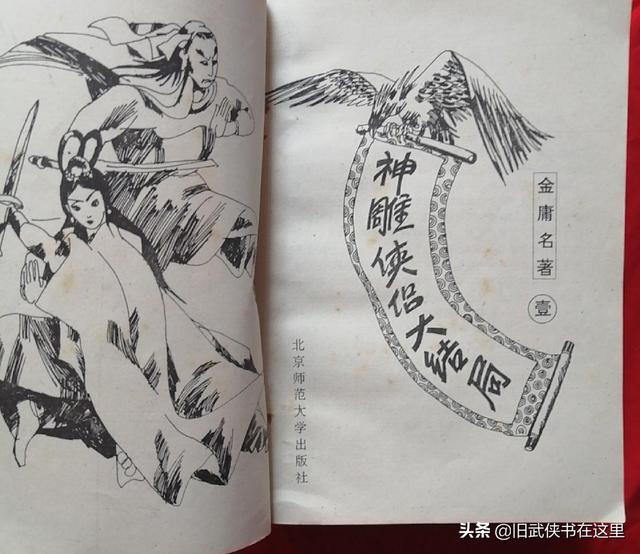 金庸名著
壹
神雕侠侣大结局
北京师范大学出版社
头条 @旧武侠书在这里